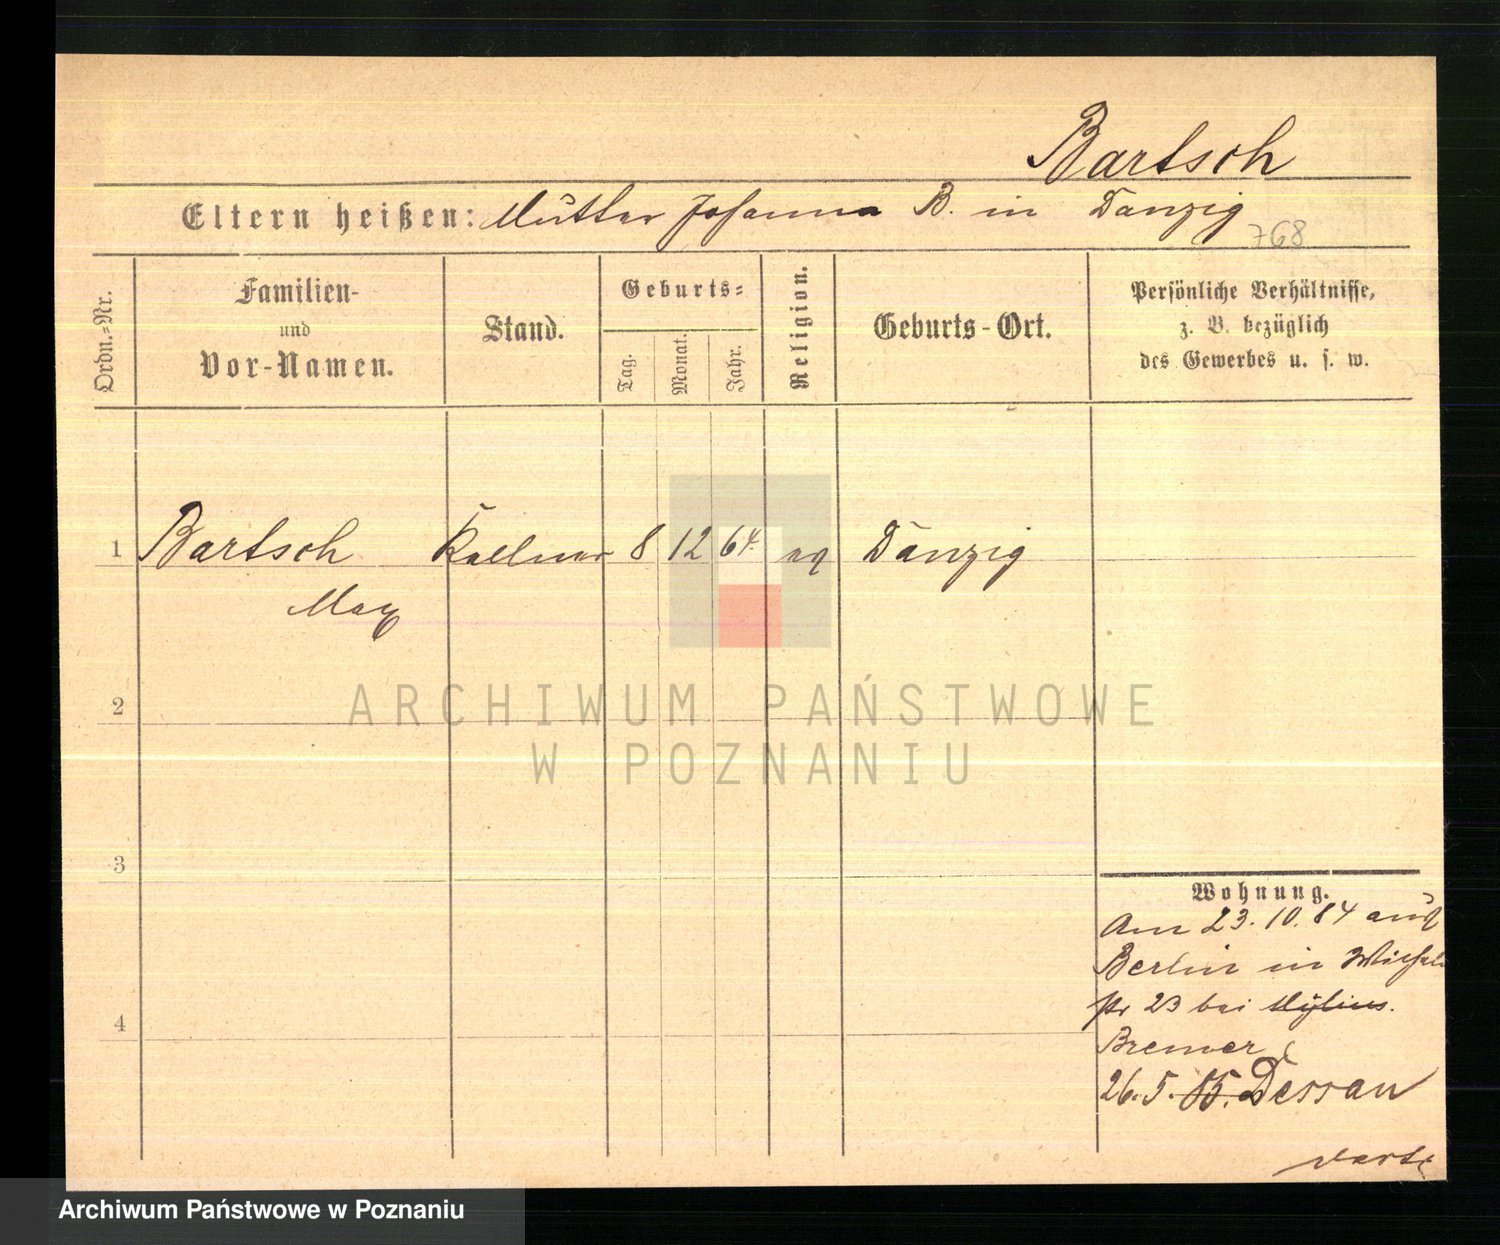 Bartsch
Eltern heißen: Mutter Johanna B. in Danzig
768
Ordn.=Nr.
Familien-
und
Vor-Namen.
Stand.
Geburts=
Tag.
Monat.
Jahr.
Religion.
Geburts-Ort.
Persönliche Verhältnisse,
z. B. bezüglich
des Gewerbes u. s. w.
1 Bartsch Kellner 8 12 64. Danzig
Max
ARCHIWUM PAŃSTWOWE
W POZNANIU
2
3
4
Wohnung.
Am 23.10.84 aus
Berlin in Wilhelm
str 23 bei Mylius.
Bremer
26.5.85. Dessau
Archiwum Państwowe w Poznaniu